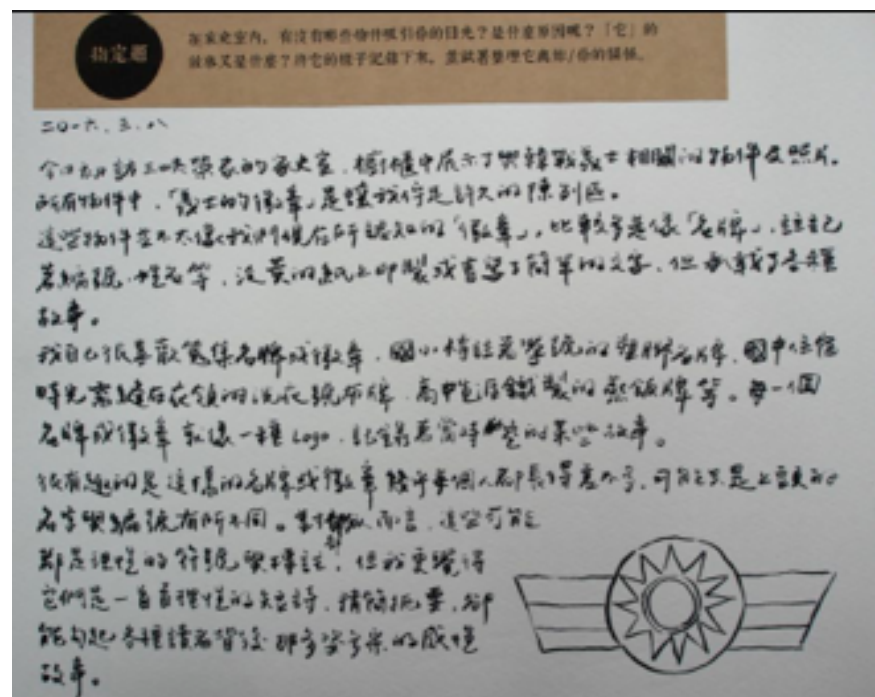 指定題
在家史室內，有沒有哪些物件吸引你的目光？是什麼原因呢？「它」的
故事又是什麼？將它的樣子記錄下來，並試著整理它與妳/你的關係。
二〇一六.三.八
今日初訪三峽榮家的家史室，櫥櫃中展示了與韓戰義士相關的物件及照片。
所有物件中，「義士的徽章」是讓我停足許久的陳列區。
這些物件並不太像我們現在所認知的「徽章」，比較多是像「名牌」，註記
著編號、姓名等，泛黃的紙上印製或書寫了簡單的文字，但承載了各種
故事。
我自己很喜歡蒐集名牌或徽章，國小時註冊學號的塑膠名牌，國中住宿
時需縫在衣領的洗衣號布牌，高中生活鐵製的蒸飯牌等。每一個
名牌或徽章就像一種Logo，記錄著當時的某些故事。
很有趣的是這樣的名牌或徽章幾乎每個人都長得差不多，可能只是上頭的
名字與編號有所不同。對 人而言，這些可能
都是理性的符號與標註，但我更覺得
它們是一首首理性的短詩，精簡扼要，卻
能勾起各種讀者背後那多姿多采的感性
故事。